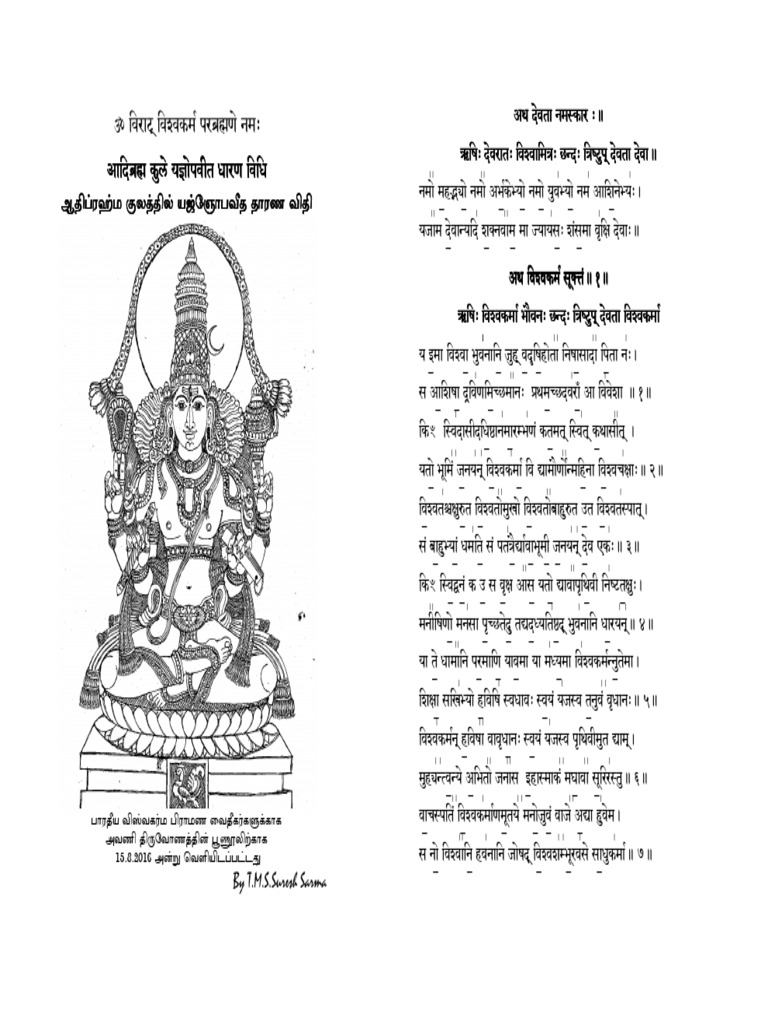 ॐ विराट् विश्वकर्म परब्रह्मणे नमः
आदिब्रह्म कुले यज्ञोपवीत धारण विधि
ஆதிப்ரஹ்ம குலத்தில் யஜ்ஞோபவீத தாரண விதி
பாரதீய விஸ்வகர்ம பிராமண வைதீகர்களுக்காக
அவணி திருவோணத்தின் பூணூலிற்காக
15.8.2016 அன்று வெளியிடப்பட்டது
By T.M.S.Suresh Sarma
अथ देवता नमस्कार ः॥
ऋषिः देवरातः विश्वामित्रः छन्दः त्रिष्टुप् देवता देवा॥
नमो॑ महद्भ्यो नमो॑ अर्भकेभ्यो नमो युवभ्यो नम आशिनेभ्यः।
यजाम देवान्यदि शक्नवाम मा ज्यायसः शंसमा वृक्षि देवाः॥
अथ विश्वकर्म सूक्तं॥ १॥
ऋषिः विश्वकर्मा भौवनः छन्दः त्रिष्टुप् देवता विश्वकर्मा
य इमा विश्वा भुवनानि जुह्व वदृषिहोता निषासादा पिता नः।
स आशिषा द्रविणमिच्छमानः प्रथमच्छदवराँ आ विवेशा ॥ १॥
कि२ स्विदासीदधिष्ठानमारम्भणं कतमत् स्वित् कथासीत् ।
यतो भूमिं जनयन् विश्वकर्मा वि द्यामौर्णोन्महिना विश्वचक्षाः॥ २॥
विश्वतश्चक्षुरुत विश्वतोमुखो विश्वतोबाहुरुत उत विश्वतस्पात्।
सं बाहुभ्यां धमति सं पतत्रैर्द्यावाभूमी जनयन् देव एकः॥ ३॥
कि२ स्विद्वनं क उ स वृक्ष आस यतो द्यावापृथिवी निष्टतक्षुः।
मनीषिणो मनसा पृच्छतेदु तद्यदध्यतिष्ठद् भुवनानि धारयन्॥ ४॥
या ते धामानि परमाणि यावमा या मध्यमा विश्वकर्मन्नुतेमा।
शिक्षा सखिभ्यो हविषि स्वधावः स्वयं यजस्व तनुवं वृधानः॥ ५॥
विश्वकर्मन् हविषा वावृधानः स्वयं यजस्व पृथिवीमुत द्याम्।
मुह्यन्त्वन्ये अभितो जनास इहास्माकं मघावा सूरिरस्तु॥ ६॥
वाचस्पतिं विश्वकर्माणमूतये मनोजुवं वाजे अद्या हुवेम।
स नो विश्वानि हवनानि जोषद् विश्वशम्भूरवसे साधुकर्मा॥ ७॥